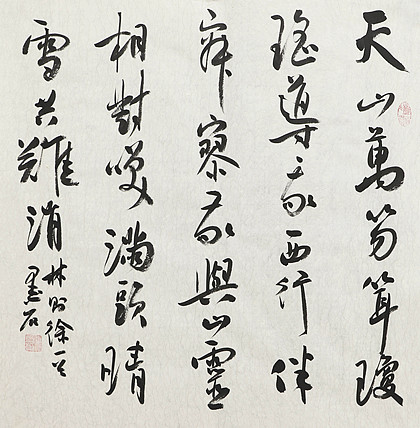 天山萬笏聳瓊
瑤導我西行伴
寂寥我與山靈
相對咲滿頭晴
雪共難消
林則徐
墨石